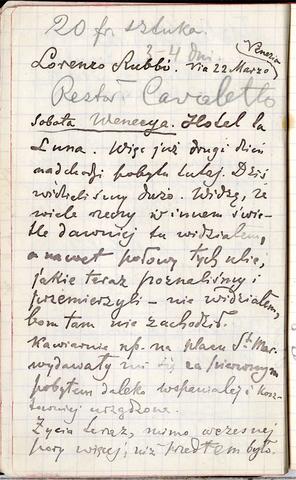 20 fr. sztuka.
3-4 dni
Venezia
Lorenzo Rubbi. Via 22 Marzo
Restor. Cavaletto
Sobota Wenecya. Hotel la
Luna. Więc już drugi dzień
nadchodzi pobytu tutaj. Dziś
widzieliśmy dużo. Widzę, że
wiele rzeczy w innem świe-
tle dawniej tu widziałem,
a nawet połowy tych ulic,
jakie teraz poznaliśmy i
przemierzyli – nie widziałem,
bom tam nie zachodził.
Kawiarnie np. na placu St. Mar.
wydawały mi się za pierwszym
pobytem daleko wspanialej i kosz-
towniej urządzone.
Życia teraz, mimo wczesnej
pory więcej, niż przedtem było.